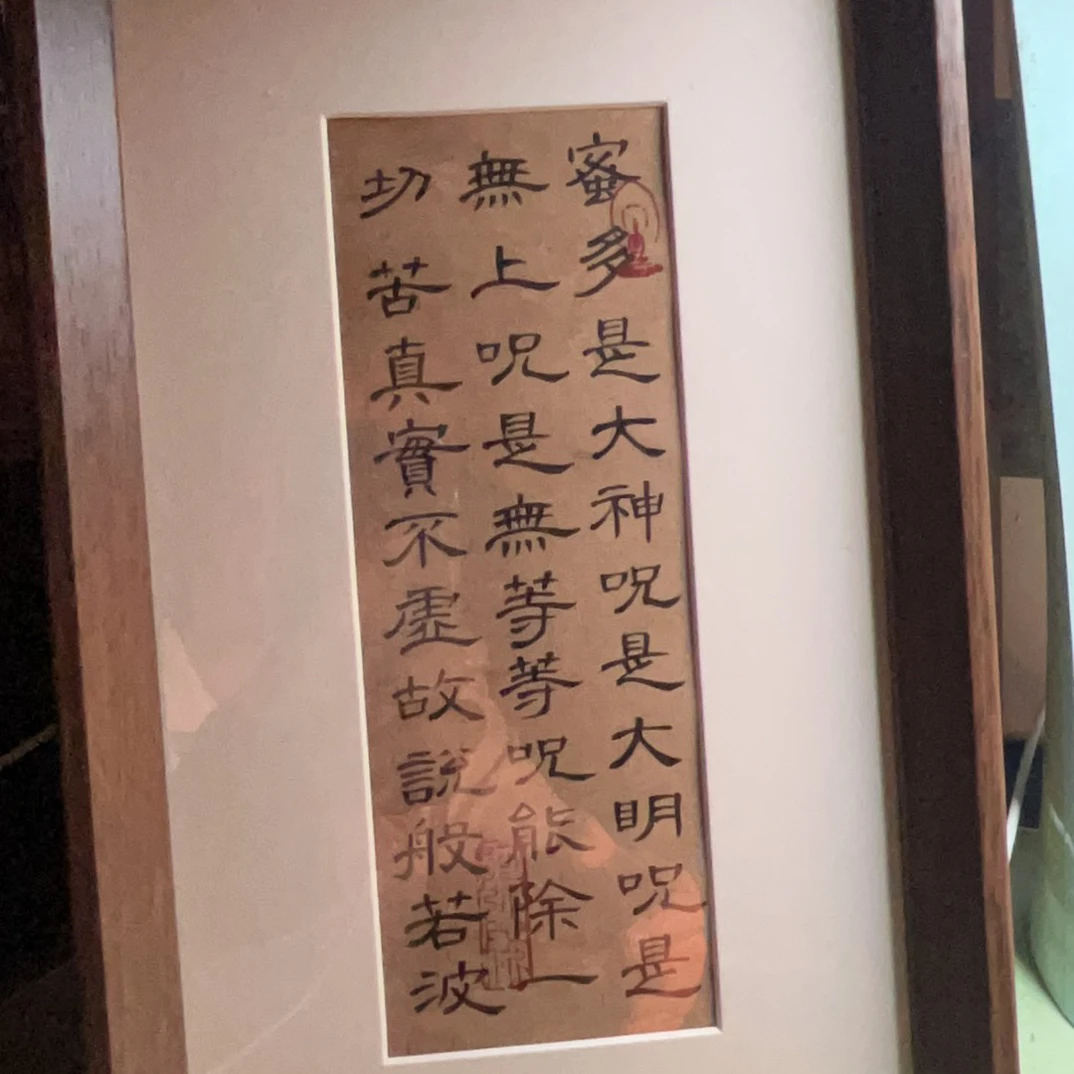 蜜多是大神呪是大明呪是
無上呪是無等等呪能除一
切苦真實不虛故說般若波